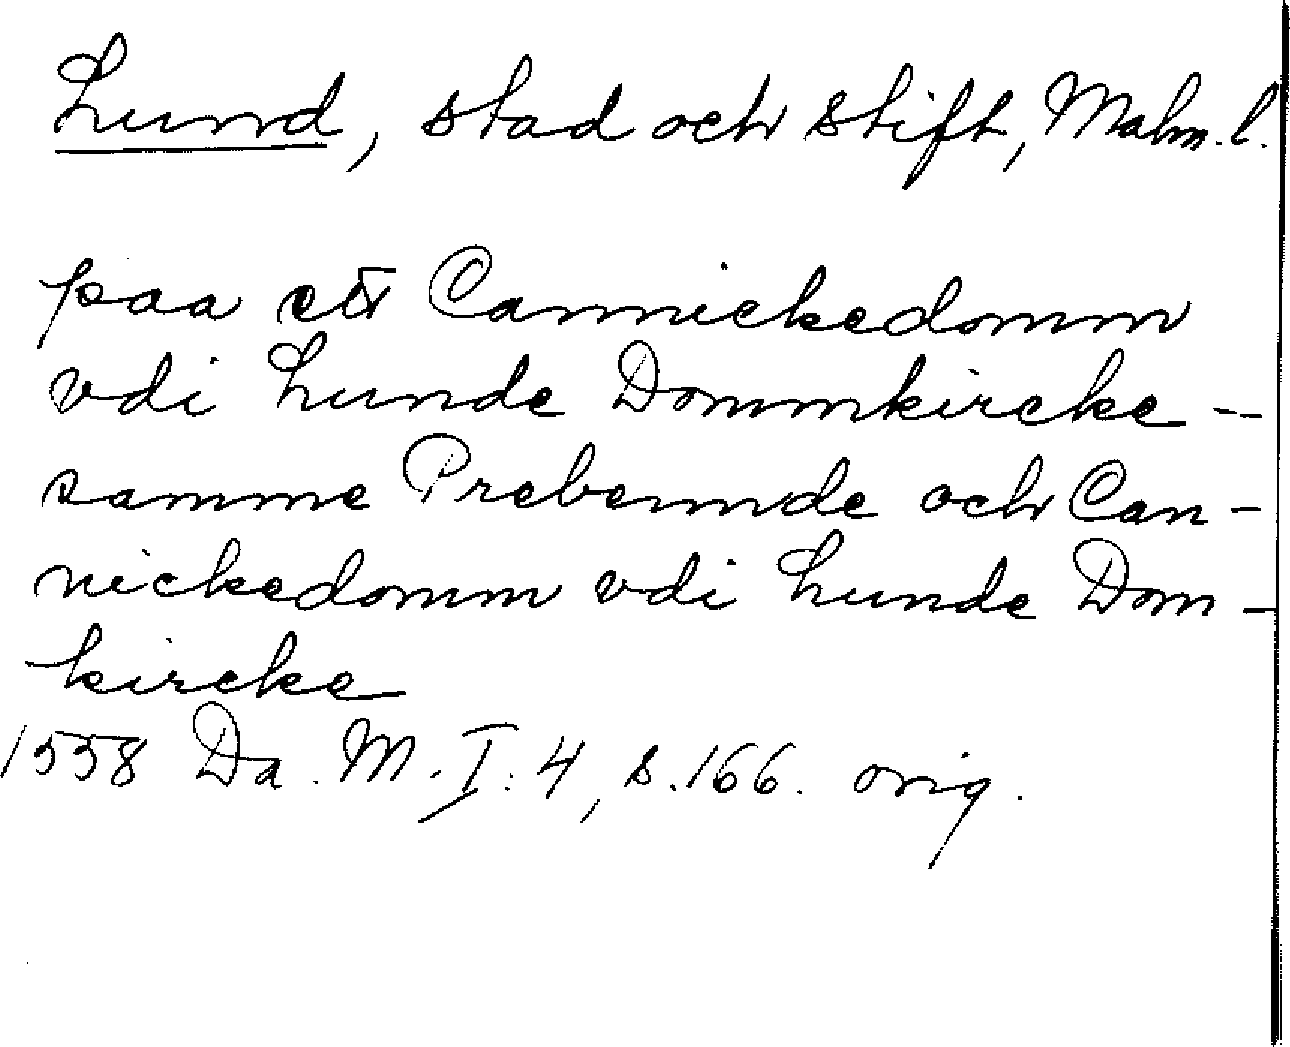 Lund, stad och stift, Malm. l.
paa ett Cannickedomm
vdi Lunde Dommkircke --
samme Prebennde och Can-
nickedomm vdi Lunde Dom-
kircke
1558 Da. M. I: 4, s. 166. orig.